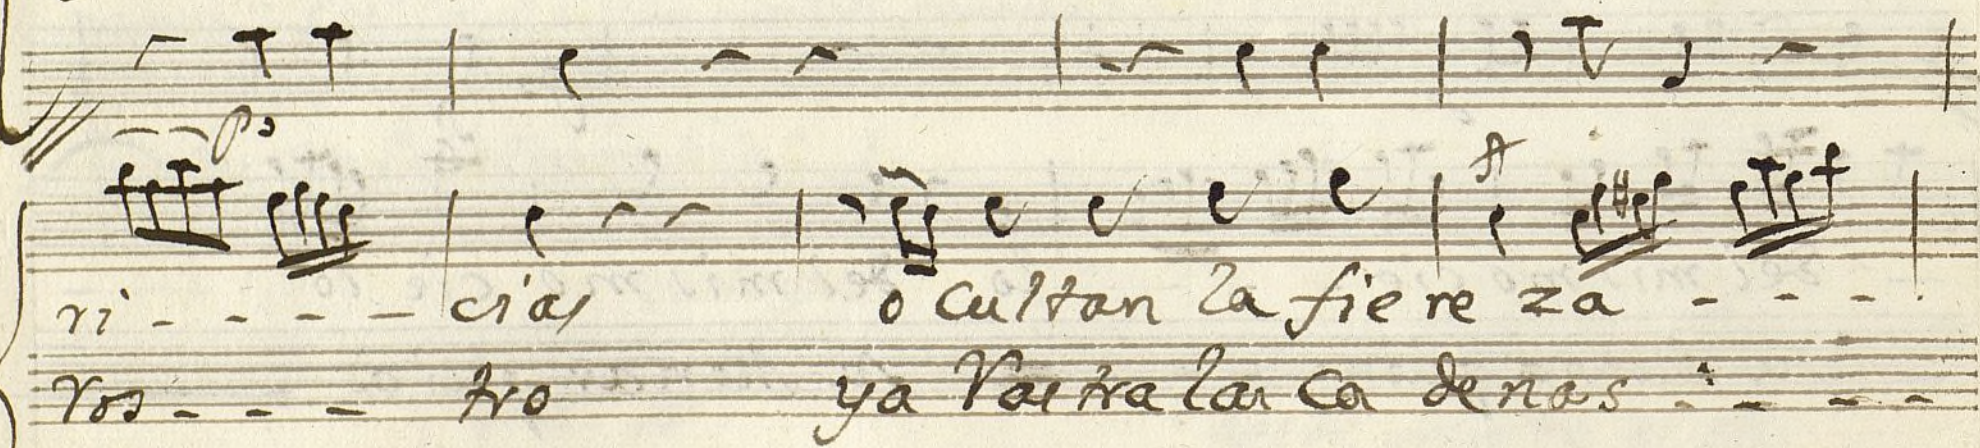 Po
A
ri - - - - cias o cultan la fiere za - - -
Ros - - - tro ya Rastra las Ca denas - - - -